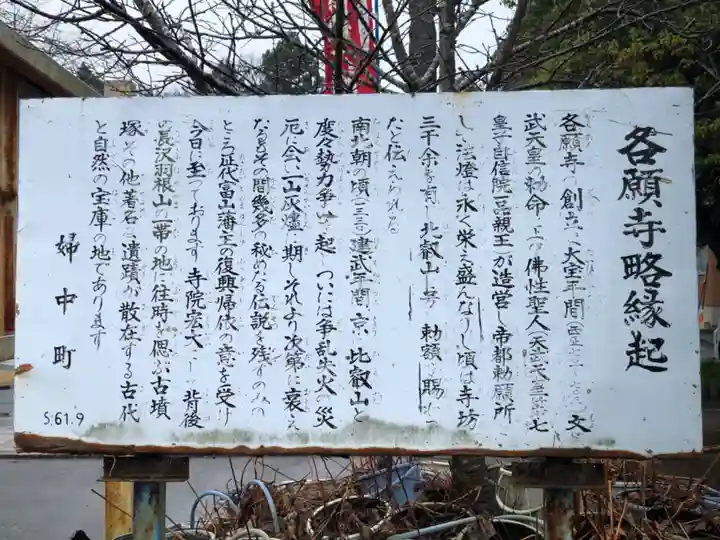 各願寺略縁起
各願寺の創立は大宝年間(西紀七〇一-七〇三)文
武天皇の勅命により佛性聖人(天武天皇第七
皇子自信院一品親王)が造営し帝都勅願所
し法燈は永く栄え盛んなりし頃は寺坊
三千余を有し北叡山と号し勅額を賜った
など伝えられる
南北朝の頃(一三三)建武年間京の比叡山と
度々勢力争いを起しついには争乱失火の災
厄に会い一山灰燼に期しそれより次第に衰え
なおその間幾多の秘めたる伝説を残すのみの
ところ近代富山藩主の復興帰依の意を受け
今日に至っております寺院宏大にして背後
の長沢羽根山の一帯の地に往時を偲ぶ古墳
塚その他著名な遺蹟が散在する古代
と自然の宝庫の地であります
婦中町
S.61.9